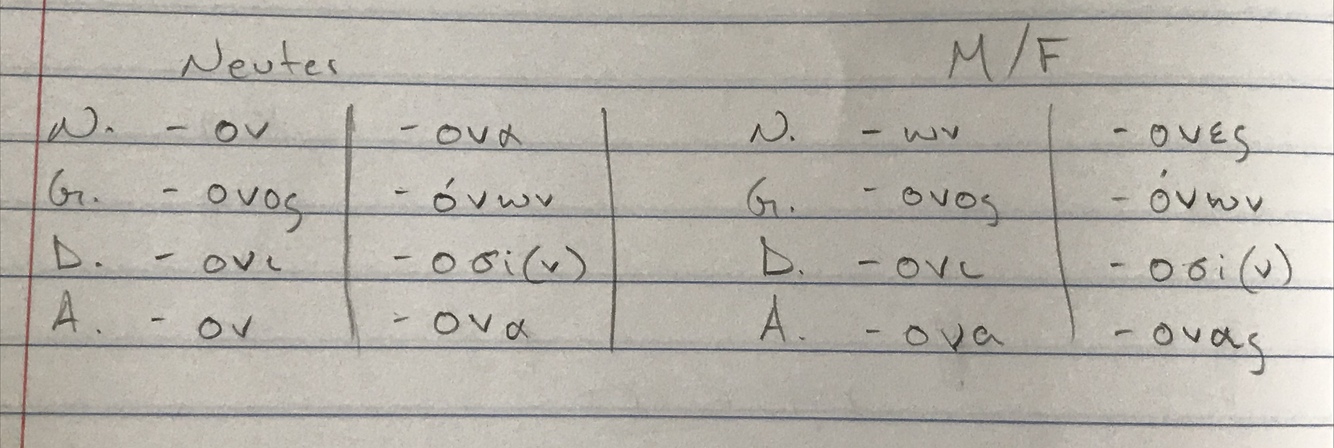 Neuter M/F
N. -ον -ονα N. -ων -ονες
G. -ονος -όνων G. -ονος -όνων
D. -ονι -οσi(ν) D. -ονι -οσi(ν)
A. -ον -ονα A. -ονα -ονας